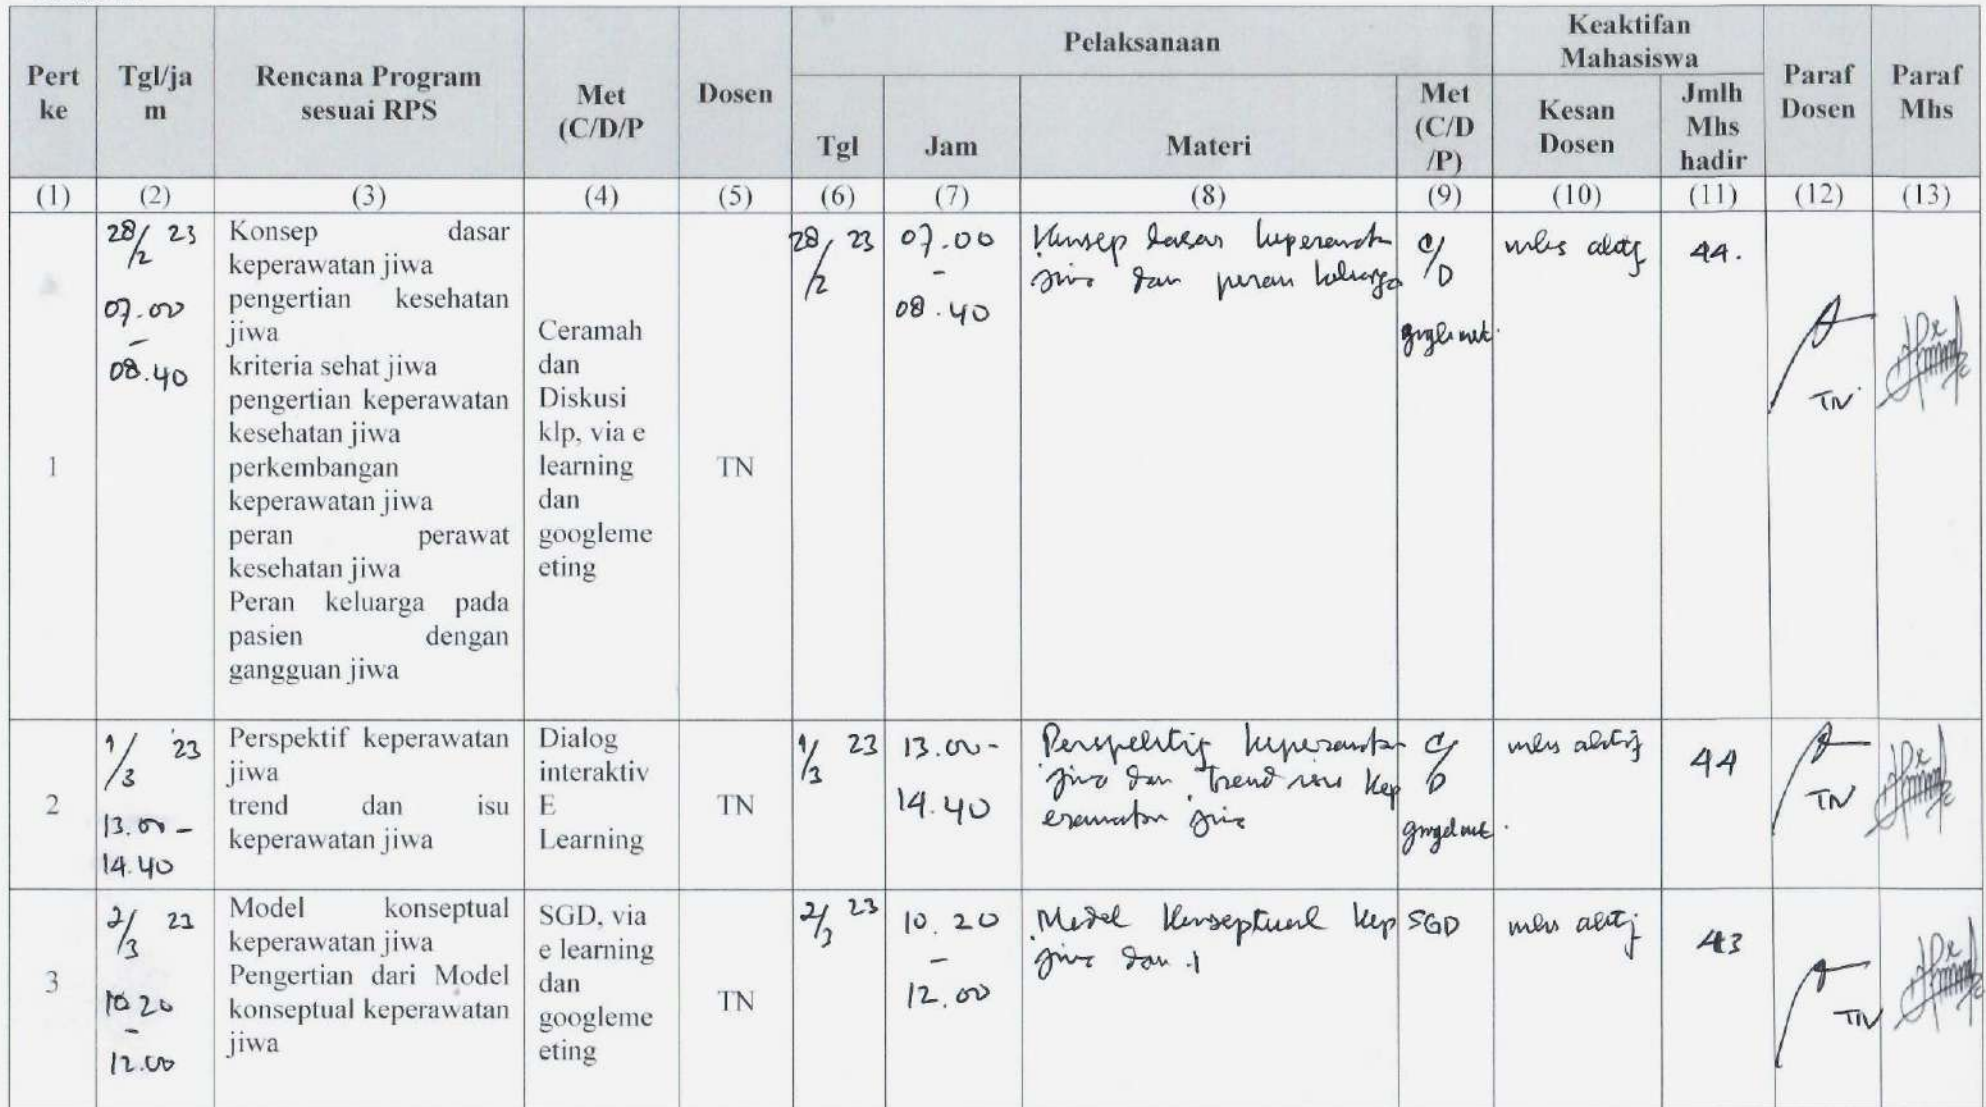 Pelaksanaan
Keaktifan
Mahasiswa
Pert
ke
Tgl/ja
m
Rencana Program
sesuai RPS
Met
(C/D/P
Dosen
Tgl
Jam
Materi
Met
(C/D
/P)
Kesan
Dosen
Jmlh
Mhs
hadir
Paraf
Dosen
Paraf
Mhs
(1) (2) (3) (4) (5) (6) (7) (8) (9) (10) (11) (12) (13)
1
28/2 23
07.00
-
08.40
Konsep dasar
keperawatan jiwa
pengertian kesehatan
jiwa
kriteria sehat jiwa
pengertian keperawatan
kesehatan jiwa
perkembangan
keperawatan jiwa
peran perawat
kesehatan jiwa
Peran keluarga pada
pasien dengan
gangguan jiwa
Ceramah
dan
Diskusi
klp, via e
learning
dan
googleme
eting
TN
28/2 23
07.00
-
08.40
Konsep dasar
jiwa dan peran keluarga
C/D
mhs aktif
44.
TN
2
1/3 '23
13.00 -
14.40
Perspektif keperawatan
jiwa
trend dan isu
keperawatan jiwa
Dialog
interaktiv
E
Learning
TN
1/3 23
13.00-
14.40
Perspektif
jiwa dan trend kep
jiwa
C/D
mhs aktif
44
TN
3
2/3 23
10 20
-
12.00
Model konseptual
keperawatan jiwa
Pengertian dari Model
konseptual keperawatan
jiwa
SGD, via
e learning
dan
googleme
eting
TN
2/3 23
10.20
-
12.00
Model konseptual kep
jiwa dan
SGD
mhs aktif
43
TN